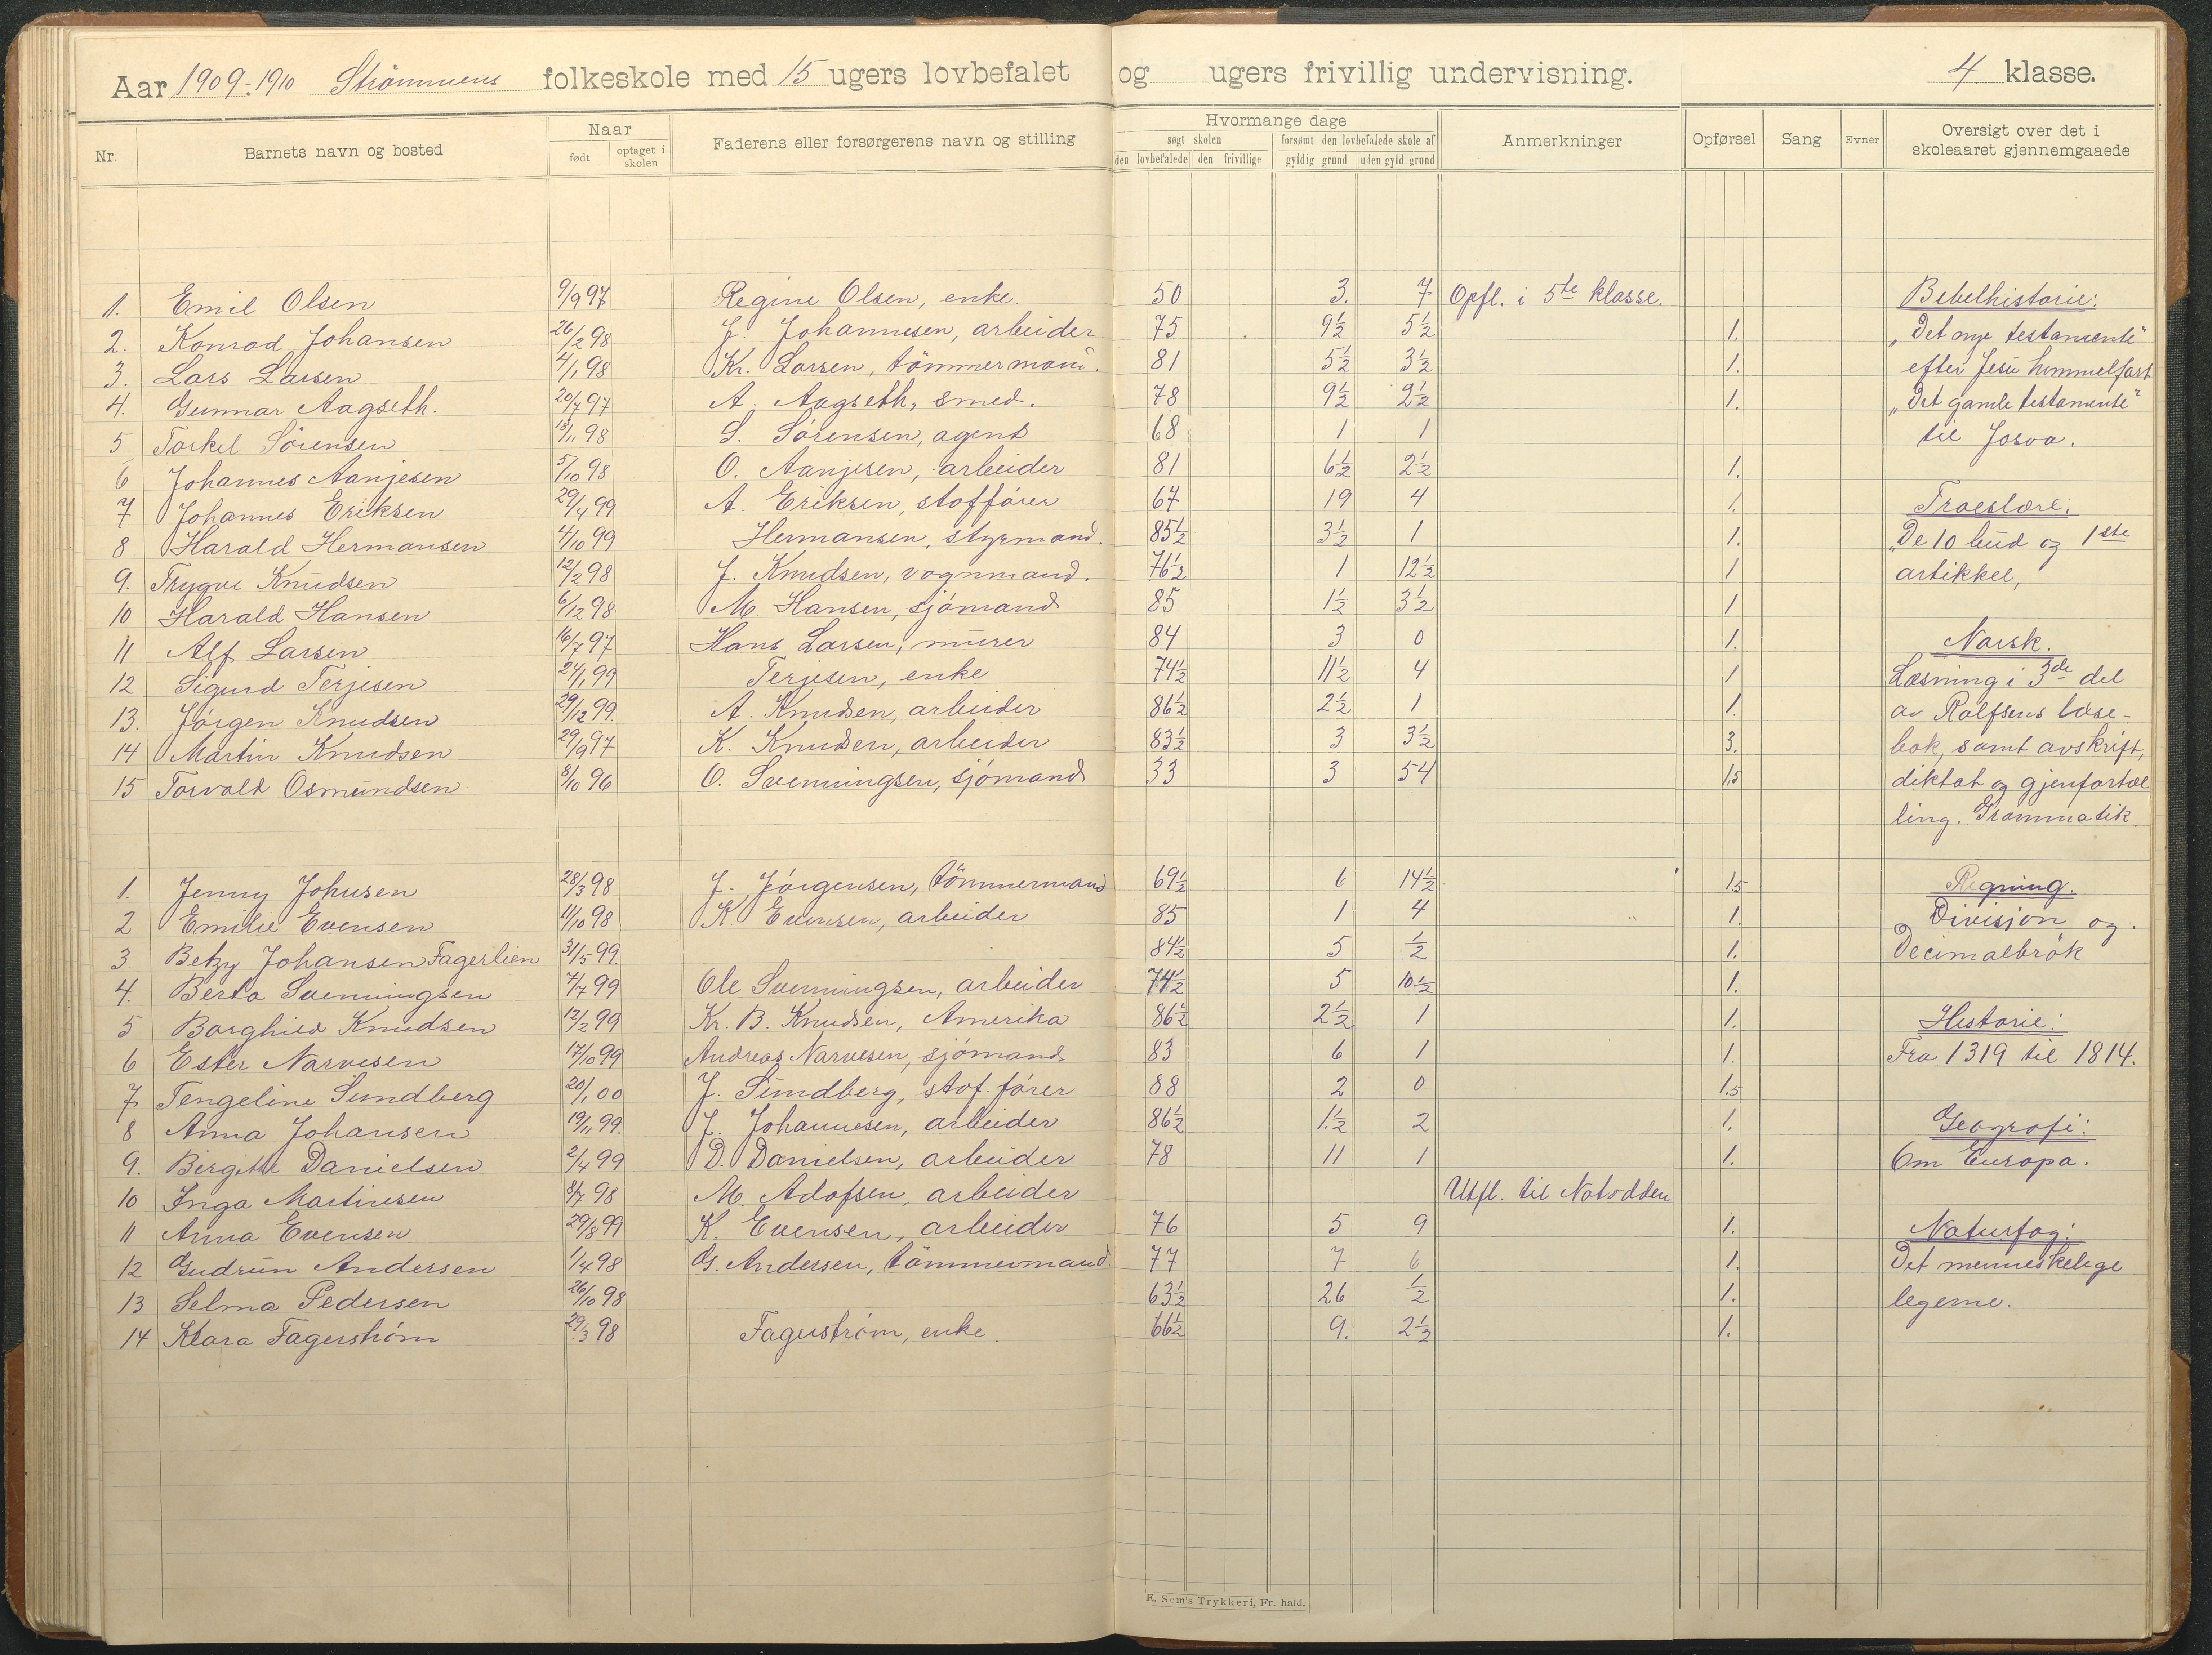 Aar 1909-1910 Strömmens folkeskole med 15 ugers lovbefalet og ugers frivillig undervisning. 4 klasse.
Nr. Barnets navn og bosted Naar født optaget i skolen Faderens eller forsørgerens navn og stilling Hvormange dage søgt skolen den lovbefalede den frivillige forsømt den lovbefalede skole af gyldig grund uden gyld. grund Anmerkninger Opførsel Sang Evner Oversigt over det i skoleaaret gjennemgaaede
1. Emil Olsen 9/9 97 Regine Olsen, enke 50 3. 7 Opfl. i 5te klasse. Bibelhistorie:
2. Konrad Johansen 26/2 98 J. Johannesen, arbeider 75 9½ 5½ 1. „Det nye testamente"
3. Lars Larsen 4/1 98 Kr. Larsen, tömmermand. 81 5½ 3½ 1. efter Jesu himmelfart
4. Gunnar Aagseth. 20/7 97 A. Aagseth, smed. 78 9½ 2½ 1. „Det gamle testamente"
5 Torkel Sörensen 13/11 98 S. Sörensen, agent 68 1 1 til Josva.
6 Johannes Aanjesen 5/10 98 O. Aanjesen, arbeider 81 6½ 2½ 1.
7 Johannes Eriksen 29/4 99 A. Eriksen, stoffører 67 19 4 1. Troeslære:
8 Harald Hermansen 4/10 99 Hermansen, styrmand. 85½ 3½ 1 1. „De 10 bud og 1ste
9. Trygve Knudsen 12/2 98 J. Knudsen, vognmand. 76½ 1 12½ 1 artikkel,
10 Harald Hansen 6/12 98 M. Hansen, sjömand 85 1½ 3½ 1
11 Alf Larsen 16/7 97 Hans Larsen, murer 84 3 0 1. Norsk.
12 Sigurd Terjesen 24/1 99 Terjesen, enke 74½ 11½ 4 1 Læsning i 3de del
13. Jörgen Knudsen 29/12 99. A. Knudsen, arbeider 86½ 2½ 1 1. av Rolfsens læse-
14 Martin Knudsen 29/9 97 K. Knudsen, arbeider 83½ 3 3½ 3. bok, samt avskrift,
15 Torvald Osmundsen 8/10 96 O. Svenningsen, sjömand 33 3 54 1.5 diktat og gjenfortæl
ling. Grammatik
1. Jenny Johnsen 28/3 98 J. Jörgensen, tömmermand 69½ 6 14½ 1.5 Regning.
2 Emilie Evensen 11/10 98 K. Evensen, arbeider 85 1 4 1. Divisjon og
3. Betzy Johansen Fagerlien 31/5 99. 84½ 5 ½ 1. Decimalbrök
4. Berta Svenningsen 7/7 99 Ole Svenningsen, arbeider 74½ 5 10½ 1.
5 Borghild Knudsen 12/2 99 Kr. B. Knudsen, Amerika 86½ 2½ 1 1. Historie:
6 Ester Narvesen 17/10 99 Andreas Narvesen, sjömand 83 6 1 1. Fra 1319 til 1814.
7 Tengeline Sundberg 20/1 00 J. Sundberg, stof.förer 88 2 0 1.5
8 Anna Johansen 19/11 99. J. Johannesen, arbeider 86½ 1.½ 2 1. Geografi:
9. Birgitte Danielsen 2/4 99 D. Danielsen, arbeider 78 11 1 1. Om Europa.
10 Inga Martinsen 8/7 98 M. Adofsen, arbeider Utfl. til Notodden
11 Anna Evensen 29/8 99 K. Evensen, arbeider 76 5 9 1. Naturfag:
12 Gudrun Andersen 1/4 98 G. Andersen, tömmermand 77 7 6 1. Det menneskelige
13 Selma Pedersen 26/10 98 63½ 26 ½ 1. legeme.
14 Klara Fagerström 29/3 98 Fagerström, enke. 66½ 9. 2½ 1.
E. Sem's Trykkeri, Fr.hald.